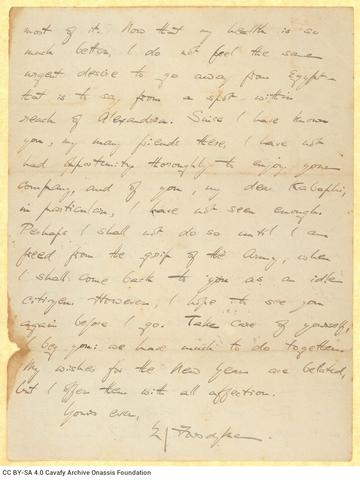 most of it. Now that my health is so
much better, I do not feel the same
urgent desire to go away from Egypt –
that is to say from a spot within
reach of Alexandria. Since I have known
you, my many friends there, I have not
had opportunity thoroughly to enjoy your
company, and of you, my dear Kabaphi,
in particular, I have not seen enough.
Perhaps I shall not do so until I am
freed from the grip of the Army, when
I shall come back to you as an idle
citizen. However, I hope to see you
again before I go. Take care of yourself,
I beg you: we have much to do together.
My wishes for the New Year are belated,
but I offer them with all affection.
Yours ever,
CC BY-SA 4.0 Cavafy Archive Onassis Foundation